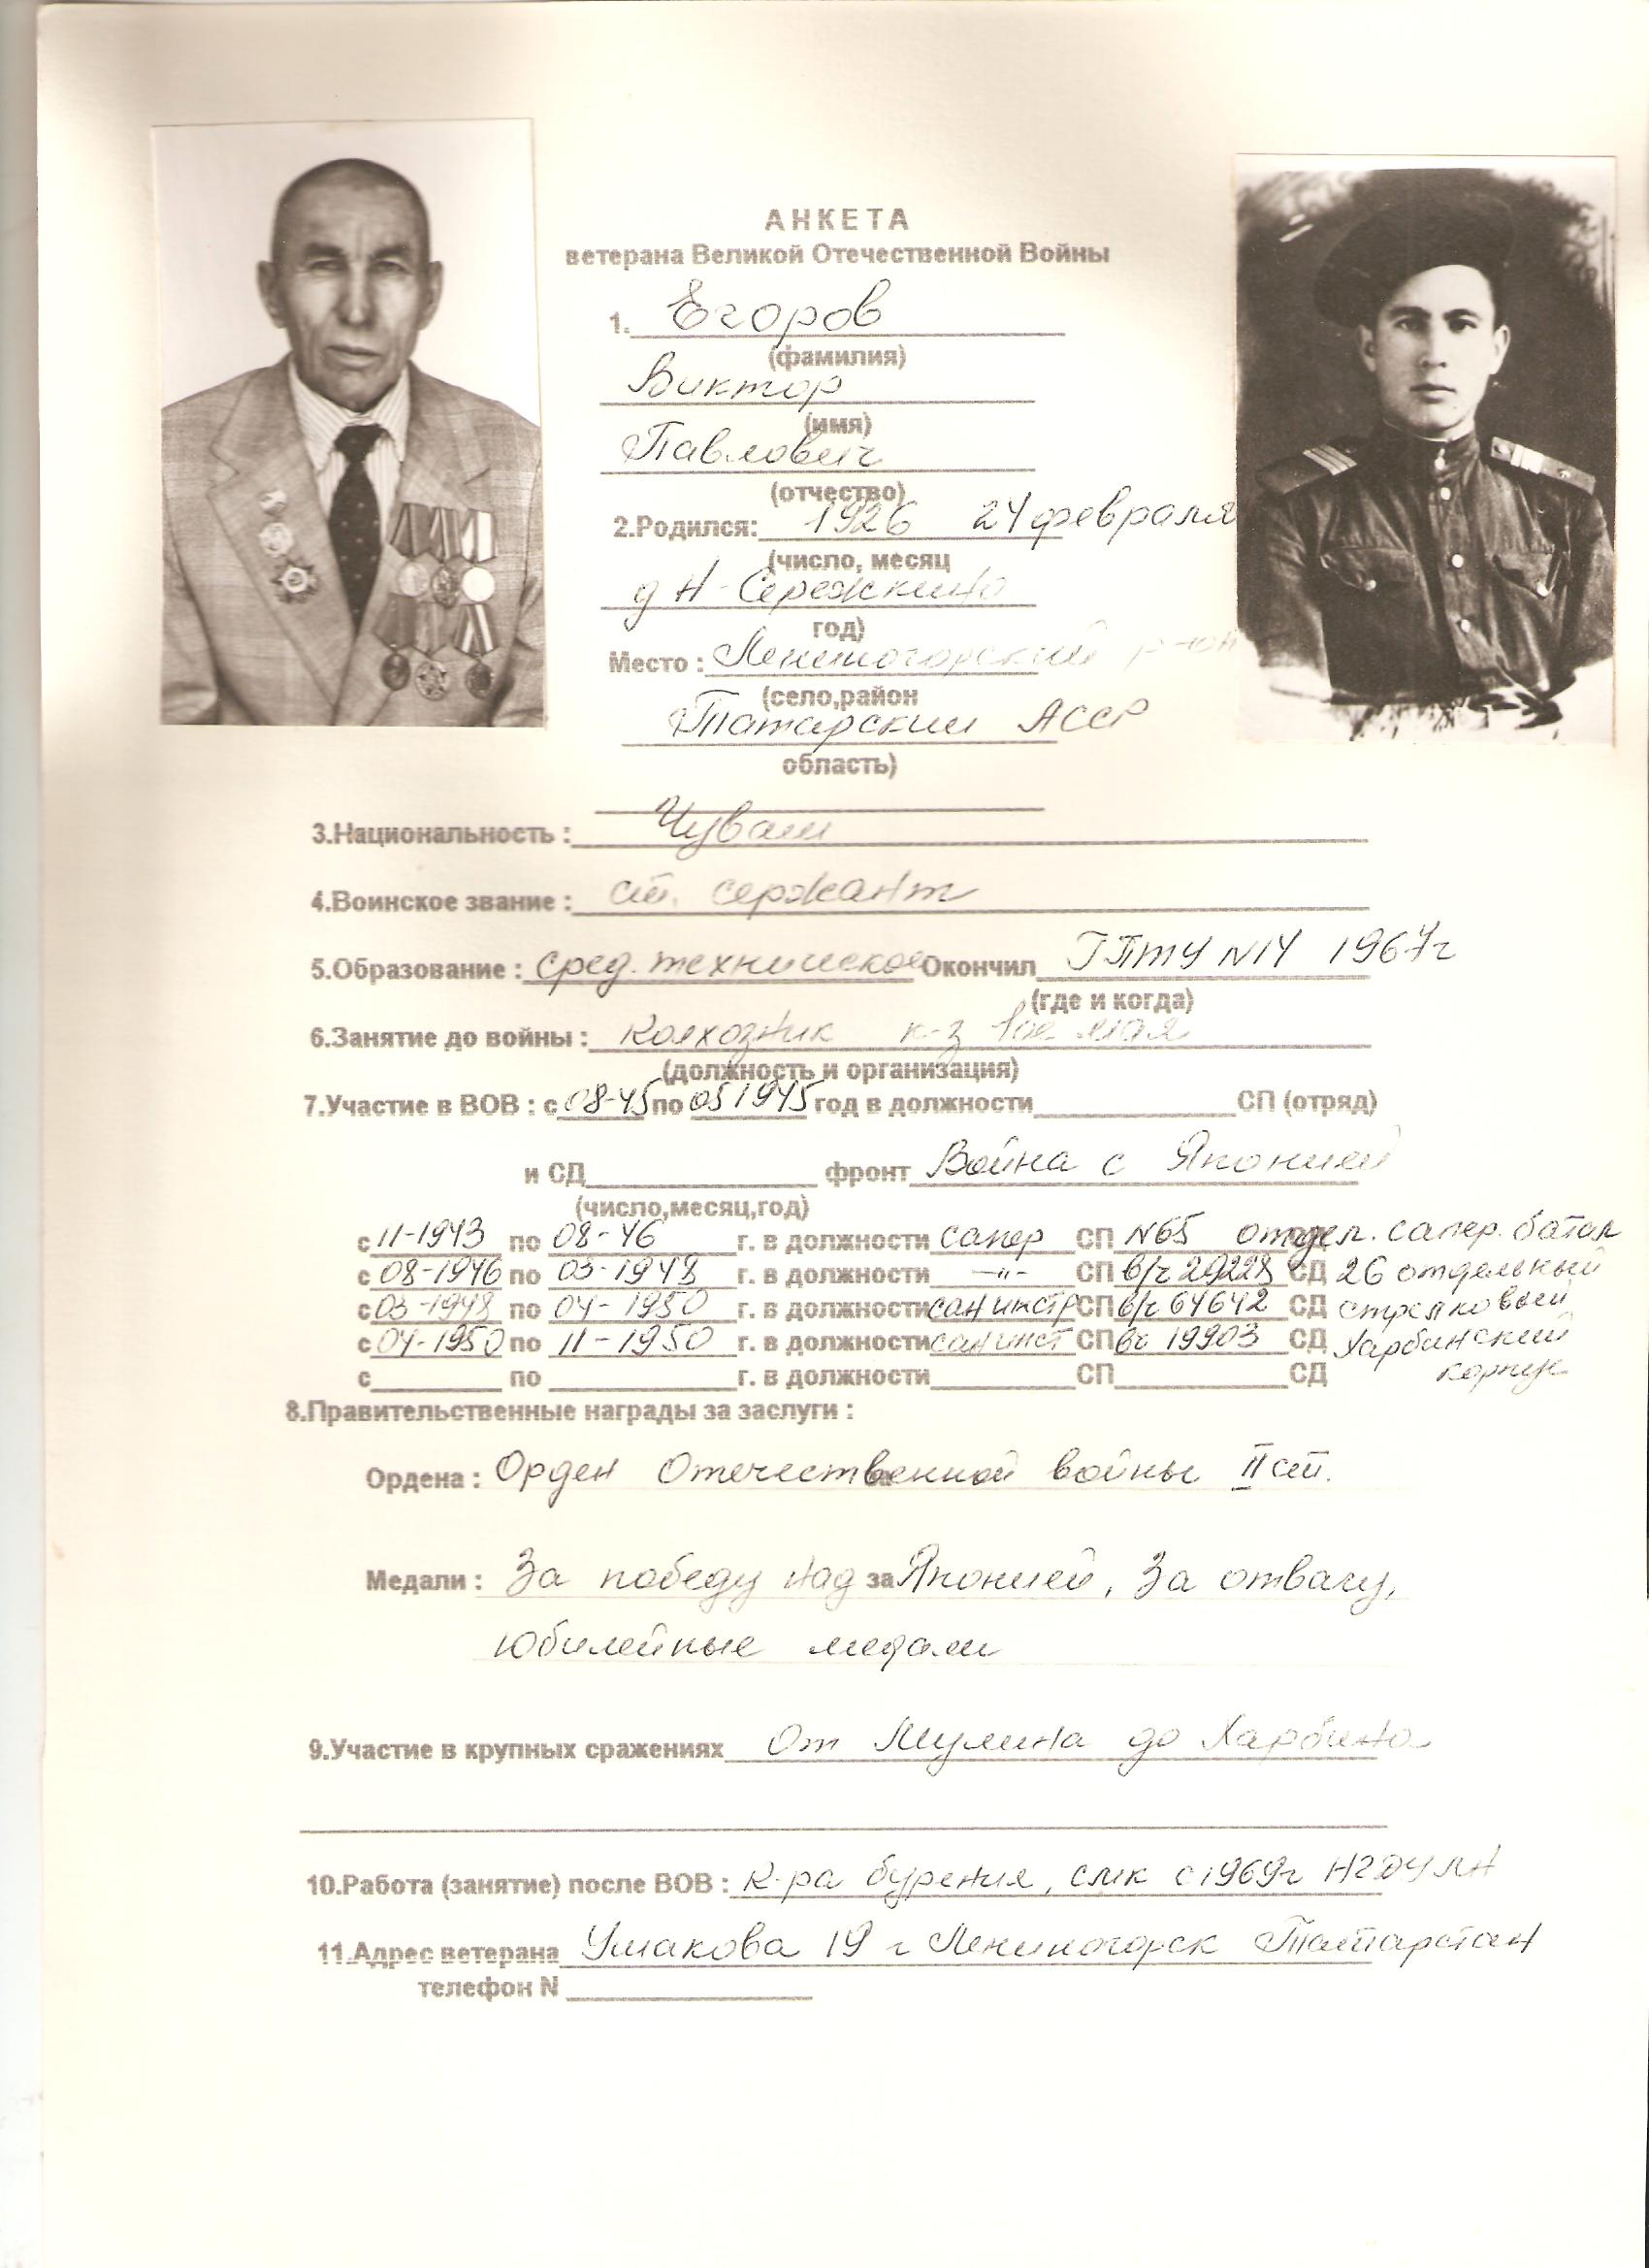 АНКЕТА
ветерана Великой Отечественной Войны
1. Егоров
(фамилия)
Виктор
(имя)
Павлович
(отчество)
2.Родился: 1926 24 февраля
(число, месяц
д Н-Сережкино
год)
Место : Лениногорский р-он
(село,район
Татарский АССР
область)
3.Национальность : Чуваш
4.Воинское звание : ст. сержант
5.Образование : сред. техническое Окончил ГПТУ №14 1967г
(где и когда)
6.Занятие до войны : колхозник к-з 1ое мая
(должность и организация)
7.Участие в ВОВ : с 08-45 по 05 1945 год в должности СП (отряд)
и СД фронт Война с Японией
(число,месяц,год)
с 11-1943 по 08-46 г. в должности сапер СП №65 отдел. сапер. батал
с 08-1946 по 03-1948 г. в должности -"- СП в/ч 29228 СД 26 отдельный
с 03-1948 по 04-1950 г. в должности сан инстр СП в/ч 64642 СД стрелковый
с 04-1950 по 11-1950 г. в должности сан инст СП вч 19903 СД Харбинский
с по г. в должности СП СД корпус
8.Правительственные награды за заслуги :
Ордена : Орден Отечественной войны II ст.
Медали : За победу над за Японией, За отвагу,
юбилейные медали
9.Участие в крупных сражениях От Мулина до Харбина
10.Работа (занятие) после ВОВ : К-ра бурения, СМК с 1969г НГДУ ЛН
11.Адрес ветерана Ушакова 19 г Лениногорск Татарстан
телефон N